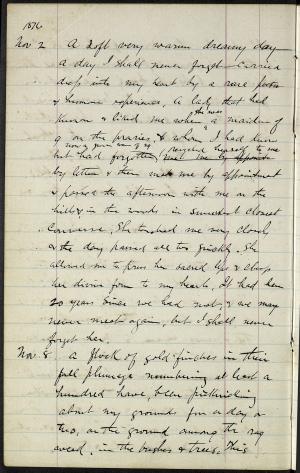 1876
Nov 2 A soft very warm dreamy day
a day I shall never forget - carried
deep into my heart by a rare
& human experience. A lady that had
known & liked me when she was a maiden of
9 on the prairie, & whom I had known
now a woman of 29 revealed herself to me
but had forgotten, met me by appoint-
by letter & then met me by appointment
& passed the afternoon with me on the
hills & in the woods in sweetest closest
converse. She touched me very closely
& the day passed all too quickly. She
allowed me to press her sacred lips & clasp
her divine form to my heart. It had been
20 years since we had met, & we may
never meet again, but I shall never
forget her.
Nov. 8 A flock of gold finches in their
full plumage numbering at least a
hundred have been
about my grounds for a day or
two, on the ground among the rag
weed, in the bushes & trees. This